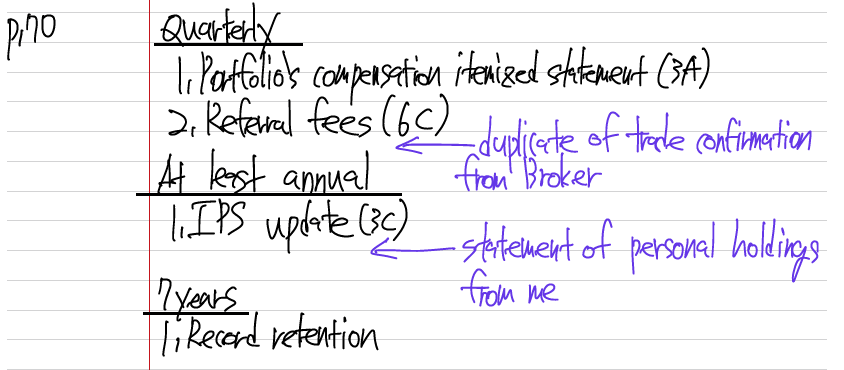 p.170
Quarterly
1. Portfolio's compensation itemized statement (3A)
2. Referral fees (6C)
duplicate of trade confirmation
from Broker
At least annual
1. IPS update (3C)
statement of personal holdings
from me
7 years
1. Record retention